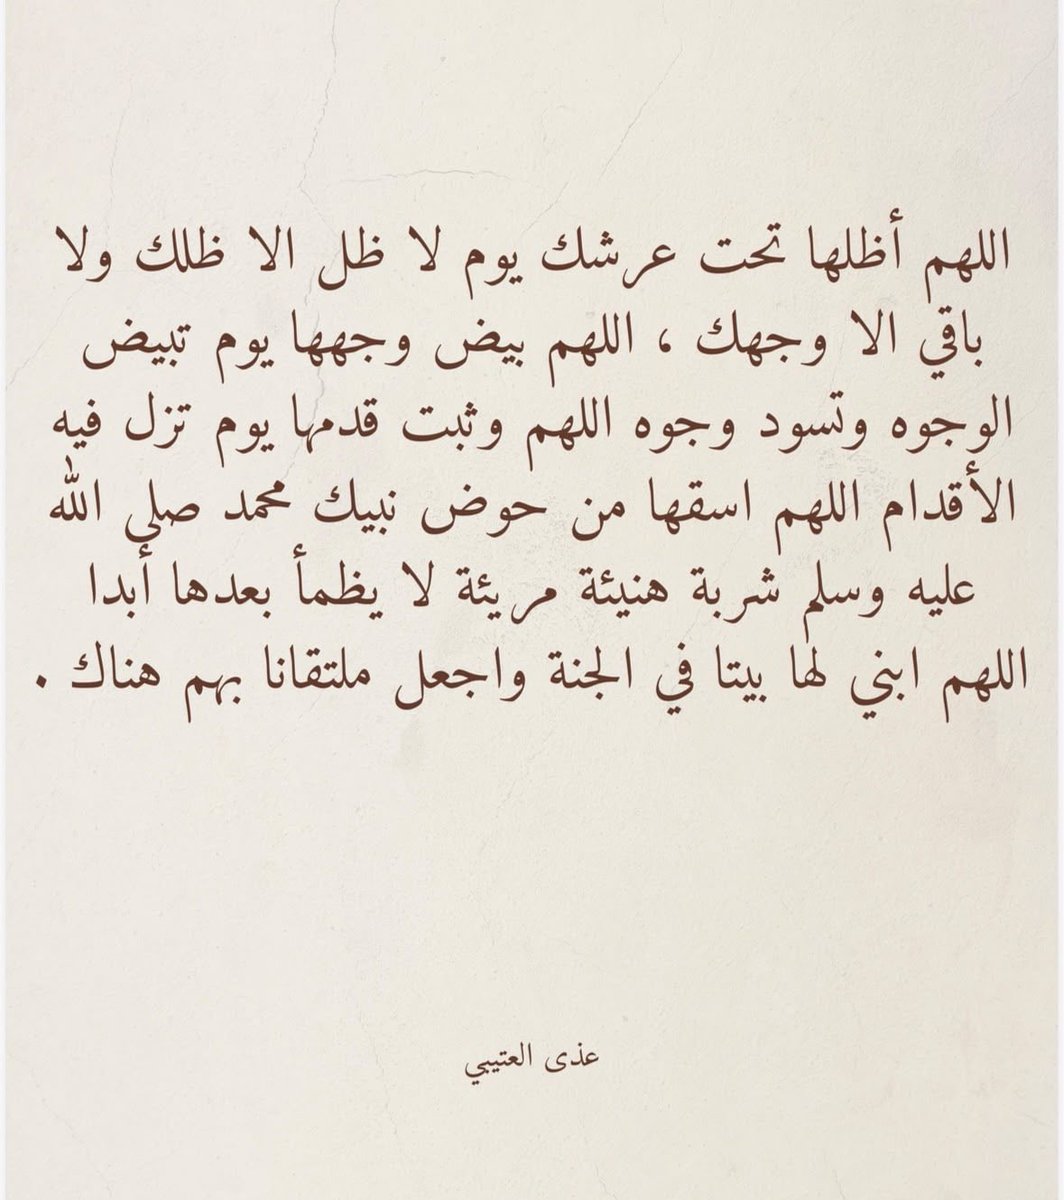 اللهم أظلها تحت عرشك يوم لا ظل الا ظلك ولا
باقي الا وجهك ، اللهم بيض وجهها يوم تبيض
الوجوه وتسود وجوه اللهم وثبت قدمها يوم تزل فيه
الأقدام اللهم اسقها من حوض نبيك محمد صلى الله
عليه وسلم شربة هنيئة مريئة لا يظمأ بعدها أبدا
اللهم ابني لها بيتا في الجنة واجعل ملتقانا بهم هناك .
عذى العتيبي